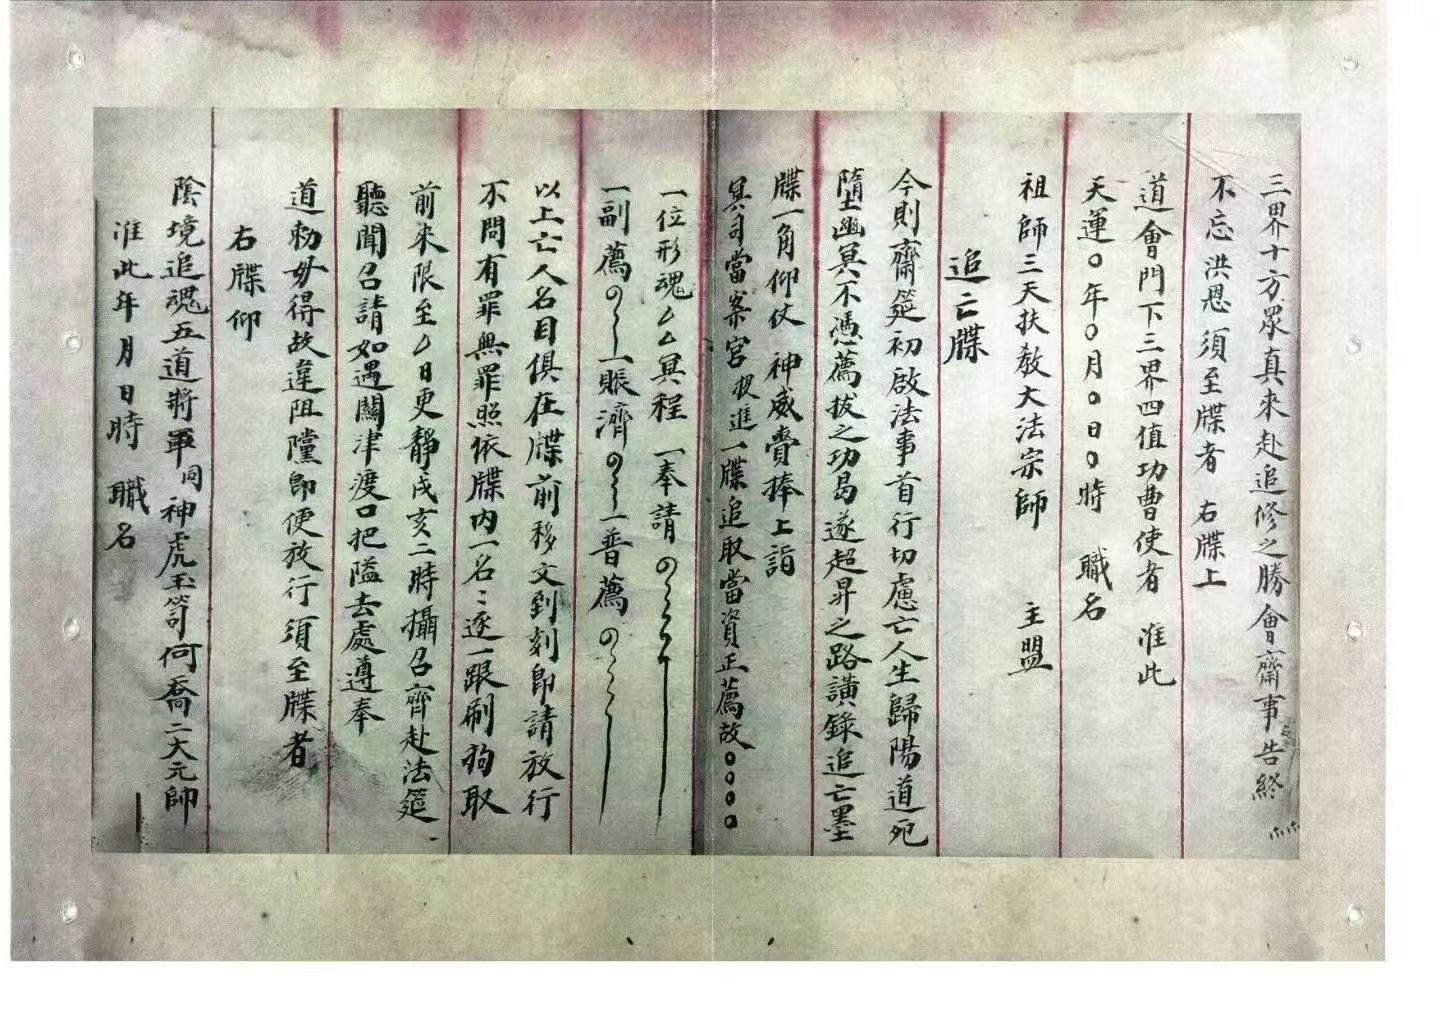 三界十方眾真来赴追修之勝會齋事告終
不忘洪恩須至牒者 右牒上
道會門下三界四值功曹使者 准此
天運〇年〇月〇日〇時 職名
祖師三天扶教大法宗師 主盟
追亡牒
今則齋筵初啟法事首行切慮亡人生歸陽道死
墮幽冥不憑薦拔之功曷遂超昇之路謹錄追亡墨
牒一角仰仗 神威賫捧上詣
冥司當案官投進一牒追取當資正薦故〇〇〇〇
一位形魂厶厶冥程 一奉請
一副薦 一賑濟 一普薦
以上亡人名目俱在牒前移文到刻即請放行
不問有罪無罪照依牒内一名〻逐一跟刷狥取
前来限至厶日更靜戌亥二時攝召齊赴法筵
聽聞召請如遇關津渡口把隘去處遵奉
道勅毋得故違阻攩即便放行須至牒者
右牒仰
陰境追魂五道將軍同神虎玉笥何喬二大元帥
准此年月日時 職名